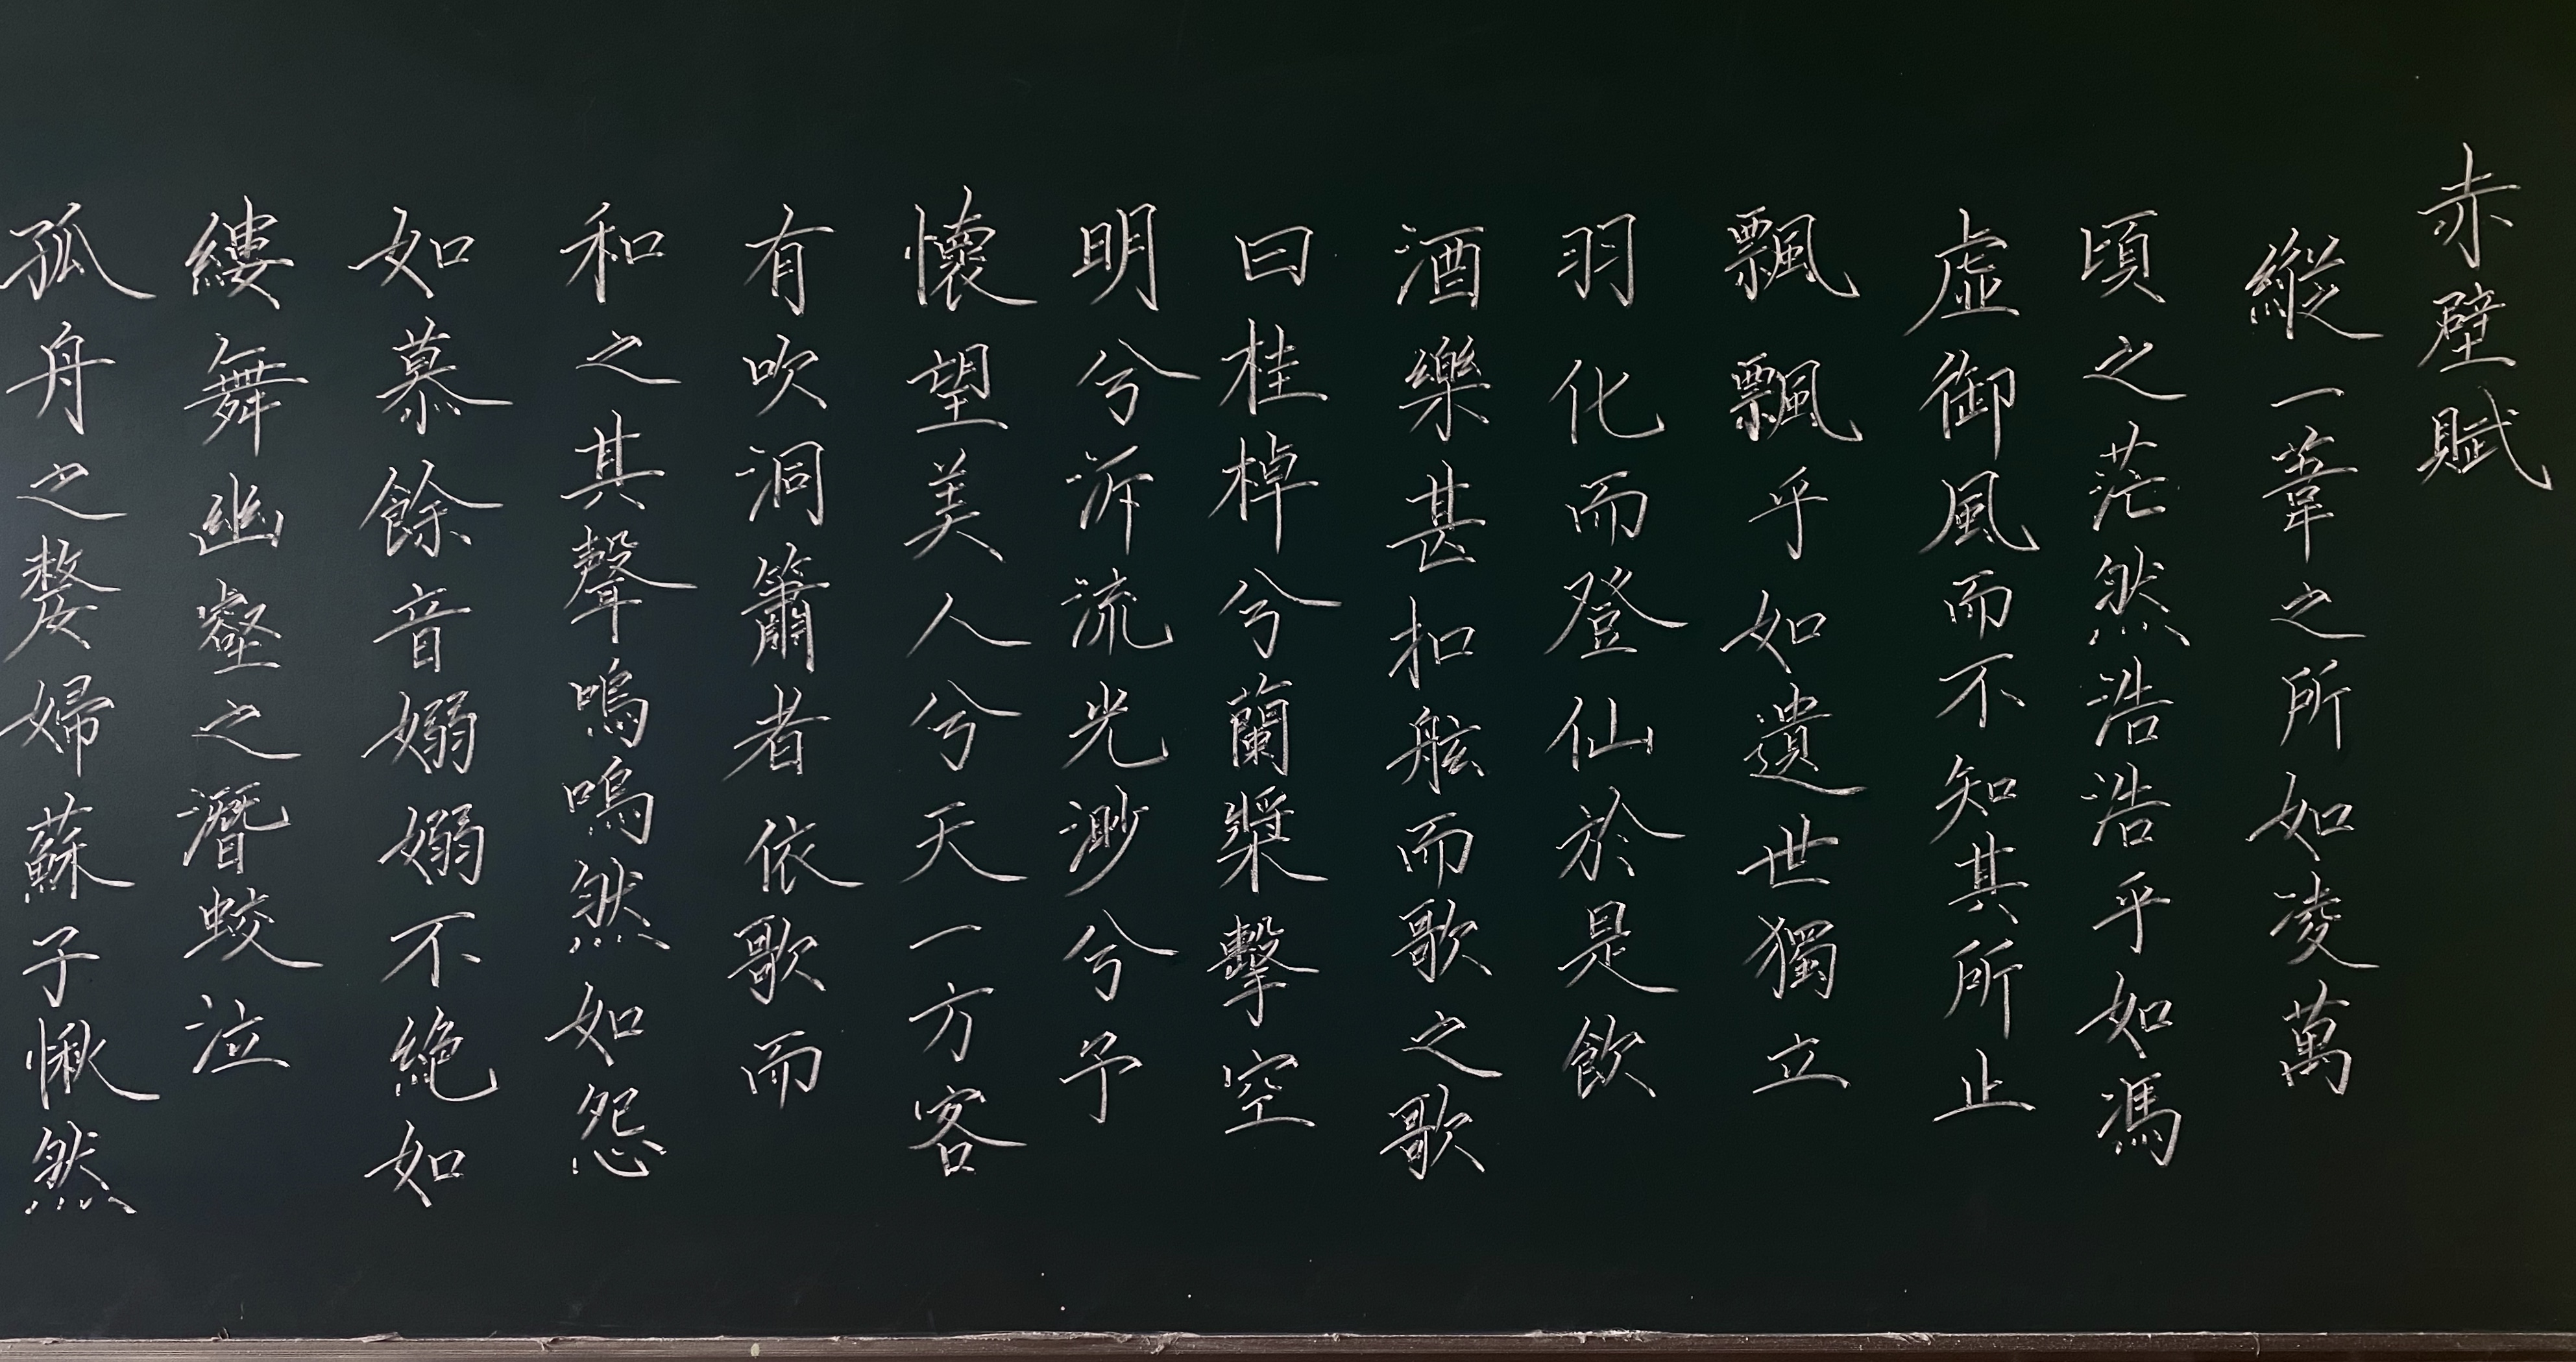 赤壁賦
縱一葦之所如凌萬
頃之茫然浩浩乎如馮
虛御風而不知其所止
飄飄乎如遺世獨立
羽化而登仙於是飲
酒樂甚扣舷而歌之歌
曰桂棹兮蘭槳擊空
明兮泝流光渺兮予
懷望美人兮天一方客
有吹洞簫者依歌而
和之其聲嗚嗚然如怨
如慕餘音嫋嫋不絶如
縷舞幽壑之潛蛟泣
孤舟之嫠婦蘇子愀然